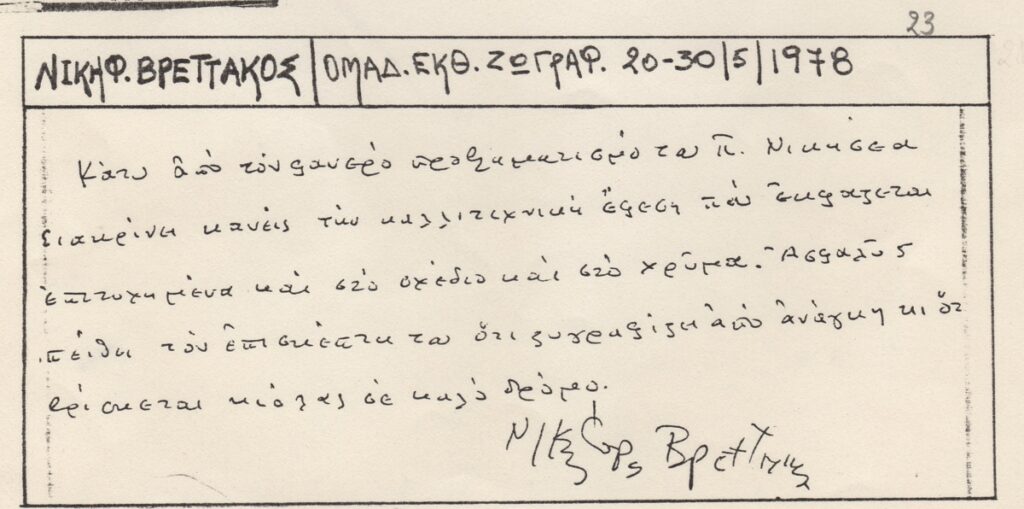 23
ΝΙΚΗΦ. ΒΡΕΤΤΑΚΟΣ | ΟΜΑΔ. ΕΚΘ. ΖΩΓΡΑΦ. 20-30/5/1978
Κάτω ἀπὸ τὸν φανερὸ προβληματισμὸ του Π. Νικήσεα
διακρίνει κανεὶς τὴν καλλιτεχνικὴ ἔφεση ποὺ ἐκφράζεται
ἐπιτυχημένα καὶ στὸ σχέδιο καὶ στὸ χρῶμα. Ἀσφαλῶς
πείθει τὸν ἐπισκέπτη του ὅτι ζωγραφίζει ἀπὸ ἀνάγκη κι ὅτ
βρίσκεται κιόλας σὲ καλὸ δρόμο.
Νικηφόρος Βρεττάκος